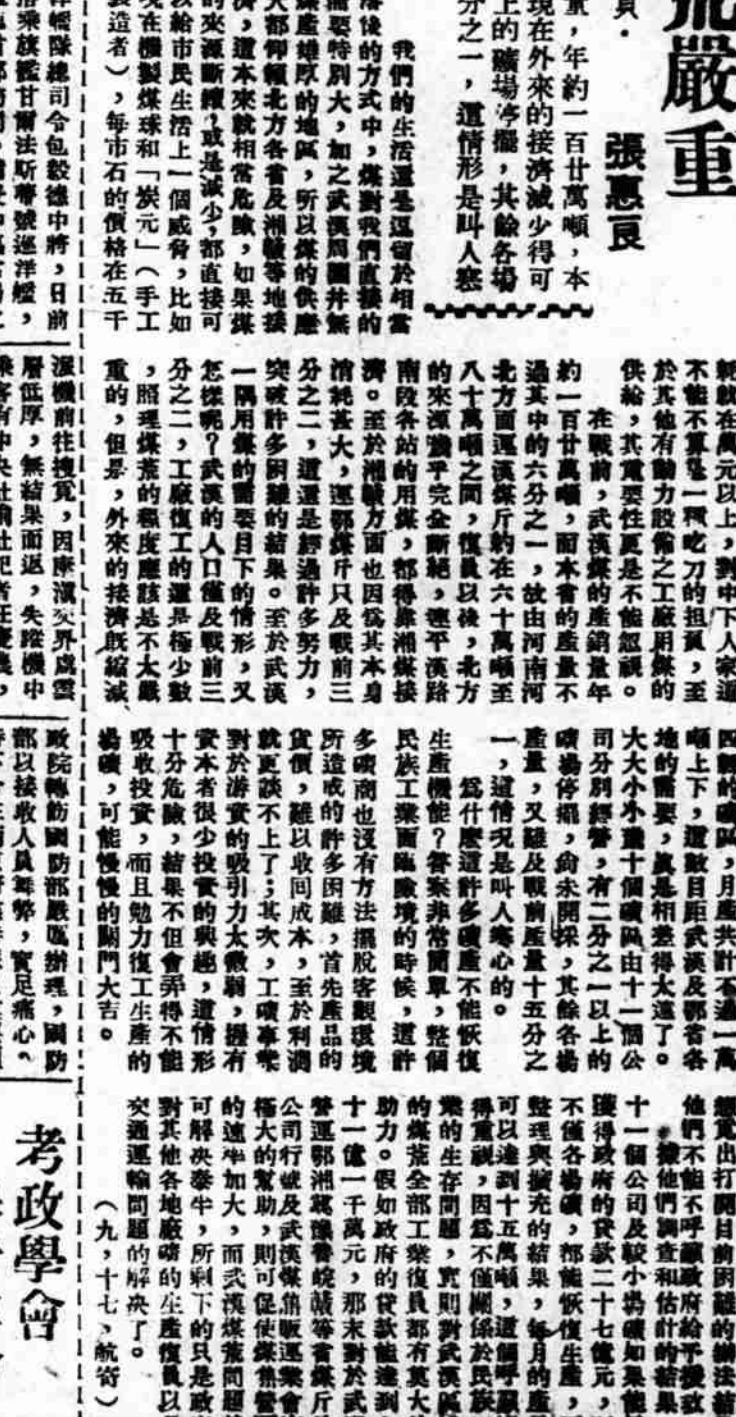 荒嚴重
張惠良
員．
，年約一百廿萬噸，本
現在外來的接濟減少得可
上的礦場停擺，其餘各場
分之一，這情形是叫人寒
我們的生活還是逗留於相當
落後的方式中，煤對我們直接的
需要特別大，加之武漢周圍并無
煤產雄厚的地區，所以煤的供應
大都仰賴北方各省及湘贛等地接
濟，這本來就相當危險，如果煤
的來源斷絕，或是減少，都直接可
以給市民生活上一個威脅，比如
現在機製煤球和「炭元」（手工
製造者），每市石的價格在五千
就在萬元以上，對中下人家這
不能不算是一種吃力的担負，至
於其他有動力設備之工廠用煤的
供給，其重要性更是不能忽視。
在戰前，武漢煤的產銷量年
約一百廿萬噸，而本省的產量不
過其中的六分之一，故由河南河
北方面運漢煤斤約在六十萬噸至
八十萬噸之間，復員以後，北方
的來源幾乎完全斷絕，連平漢路
南段各站的用煤，都得靠湘煤接
濟。至於湘贛方面也因為其本身
消耗甚大，運鄂煤斤只及戰前三
分之二，這還是經過許多努力，
突破許多困難的結果。至於武漢
一隅用煤的需要目下的情形，又
怎樣呢？武漢的人口僅及戰前三
分之二，工廠復工的還是極少數
，照理煤荒的程度應該是不太嚴
重的，但是，外來的接濟既縮減
四縣的礦區，月產共計不過一萬
噸上下，這數目距武漢及鄂省各
地的需要，真是相差得太遠了。
大大小小數十個礦區由十一個公
司分別經營，有二分之一以上的
礦場停擺，尚未開採，其餘各場
產量，又難及戰前產量十五分之
一，這情況是叫人寒心的。
為什麼這許多礦產不能恢復
生產機能？答案非常簡單，整個
民族工業面臨險境的時候，這許
多礦商也沒有方法擺脫客觀環境
所造成的許多困難，首先產品的
貨價，難以收回成本，至於利潤
就更談不上了；其次，工礦事業
對於游資的吸引力太微弱，擁有
資本者很少投資的興趣，這情形
十分危險，結果不但會弄得不能
吸收投資，而且勉力復工生產的
場礦，可能慢慢的關門大吉。
出打開目前困難的辦法結
他們不能不呼籲政府給予援救
據他們調查和估計的結果
十一個公司及較小場礦如果能
獲得政府的貸款二十七億元，
不僅各場礦，都能恢復生產，
整理與擴充的結果，每月的產
可以達到十五萬噸，這個呼籲
得重視，因為不僅關係於民族
業的生存問題，實則對武漢區
的煤荒全部工業復員都有莫大
助力。假如政府的貸款能達到
十一億一千萬元，那末對於武
營運鄂湘冀豫晉皖贛等省煤斤
公司行號及武漢煤焦販運業會
極大的幫助，則可促使煤焦營
的速率加大，而武漢煤荒問題
可解決泰半，所剩下的只是政
對其他各地廠礦的生產復員以
交通運輸問題的解決了。
（九，十七，航寄）
艦隊總司令包毅德中將，日前
搭乘旗艦甘爾法斯蒂號巡洋艦，
派機前往搜覓，因康滇交界處雲
層低厚，無結果而返，失蹤機中
政院轉飭國防部嚴厲辦理，國防
部以接收人員舞弊，實足痛心。
考政學會